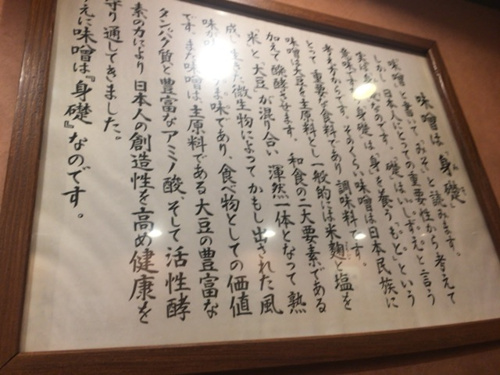 味噌は身礎
味噌と書いて「みそ」と読みます。
しかし、日本人にとっての重要性から考えて
実は「身礎」なのです。「礎」はいしずえと言う
意味です。「身礎」は「身」を養う「もと」という
考え方からです。そのくらい味噌は日本民族に
とって重要な食料であり調味料です。
味噌は大豆を主原料とし一般的には米麹と塩を
加えて醗酵させます。和食の二大要素である
「米」と「大豆」が混り合い渾然一体となって熟
成された微生物によってかもし出された風
味がうま味であり、食べ物としての価値
です。また味噌は主原料である大豆の豊富な
タンパク質と豊富なアミノ酸、そして活性酵
素の力により日本人の創造性を高め健康を
守り通してきました。
えに味噌は『身礎』なのです。